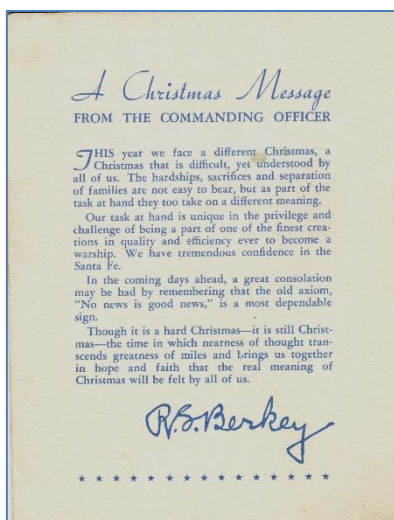 A Christmas Message
FROM THE COMMANDING OFFICER
THIS year we face a different Christmas, a
Christmas that is difficult, yet understood by
all of us. The hardships, sacrifices and separation
of families are not easy to bear, but as part of the
task at hand they too take on a different meaning.
Our task at hand is unique in the privilege and
challenge of being a part of one of the finest crea-
tions in quality and efficiency ever to become a
warship. We have tremendous confidence in the
Santa Fe.
In the coming days ahead, a great consolation
may be had by remembering that the old axiom,
"No news is good news," is a most dependable
sign.
Though it is a hard Christmas—it is still Christ-
mas—the time in which nearness of thought tran-
scends greatness of miles and brings us together
in hope and faith that the real meaning of
Christmas will be felt by all of us.
R.S.Berkey